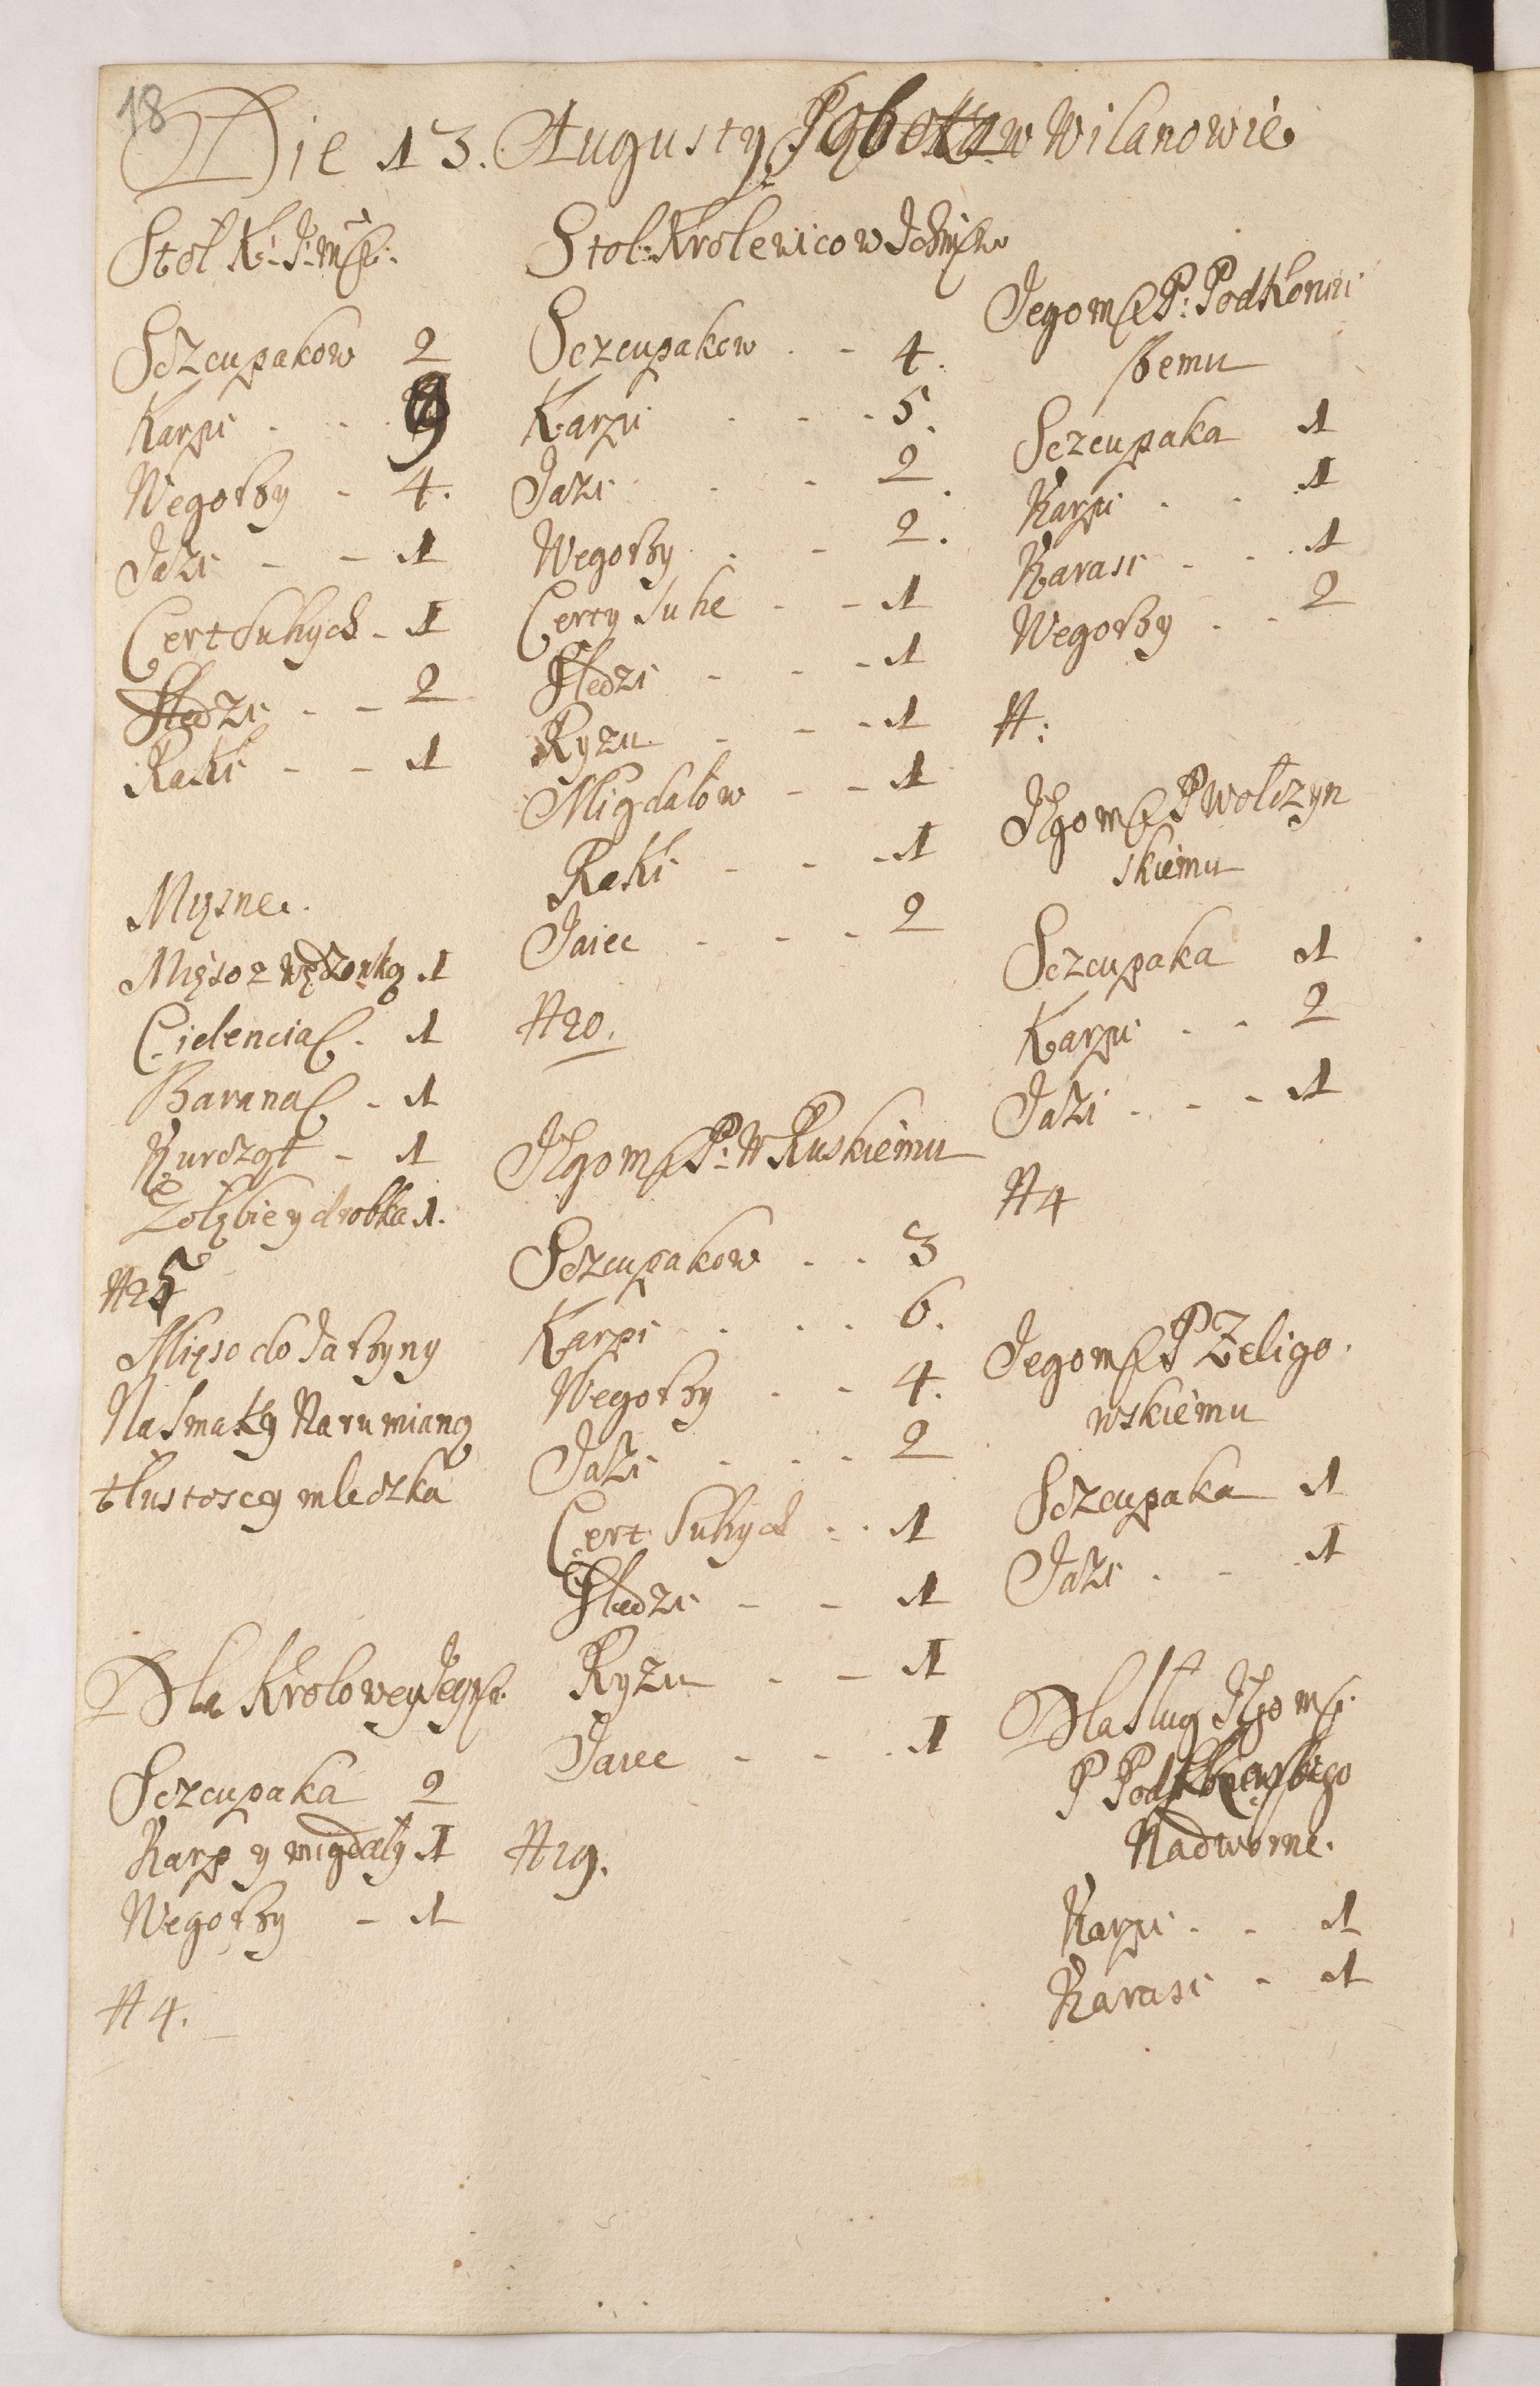 18
Die 13. Augusty Sobota w Wilanowie
Stol K. J. mści.
Sczcupakow 2
Karpi . . . 9
Wegorzy - 4.
Jazi - - 1
Cert Suhych - 1
Sledzi - - 2
Raki - - 1
Mięsne.
Mięso z wędzonką 1
Cielencia C. 1
Barana C - 1
Kurcząt - 1
Gołębie y drobka 1.
N 25
Mięso do Jarzyny
Na Smaky Na rumiany
tłustoscy mleczka
Dla Krolowey Jeymści
Sczcupaka 2
Karp y migdały 1
Wegorzy - 1
N 4.
Stol Krolewicow
Sczcupakow . - 4.
Karpi . . - 5.
Jazi . - 2.
Wegorzy . - 2.
Certy Suhe - - 1
Sledzi - - - 1
Ryzu - - - 1
Migdałow - - 1
Raki - - - 1
Jaiec - - - 2
N 20.
Jegomści P. W Ruskiemu
Sczcupakow . . 3
Karpi . . . 6.
Wegorzy . - 4.
Jazi . . . 2
Cert Suhych . . 1
Sledzi - - 1
Ryzu - - 1
Jaiec - - . 1
N 19.
Jegomści P. Podkoniu
szemu
Sczcupaka 1
Karpi . . 1
Karasi - . 1
Wegorzy . - 2
N :
Jegomści P Wolczyn
skiemu
Sczcupaka 1
Karpi . - 2
Jazi . - - 1
N 4
Jegomści P Zeligo.
wskiemu
Sczcupaka 1
Jazi . - 1
Dla Sług Jegomści.
P
Nadworne.
Karpi . - 1
Karasi - 1